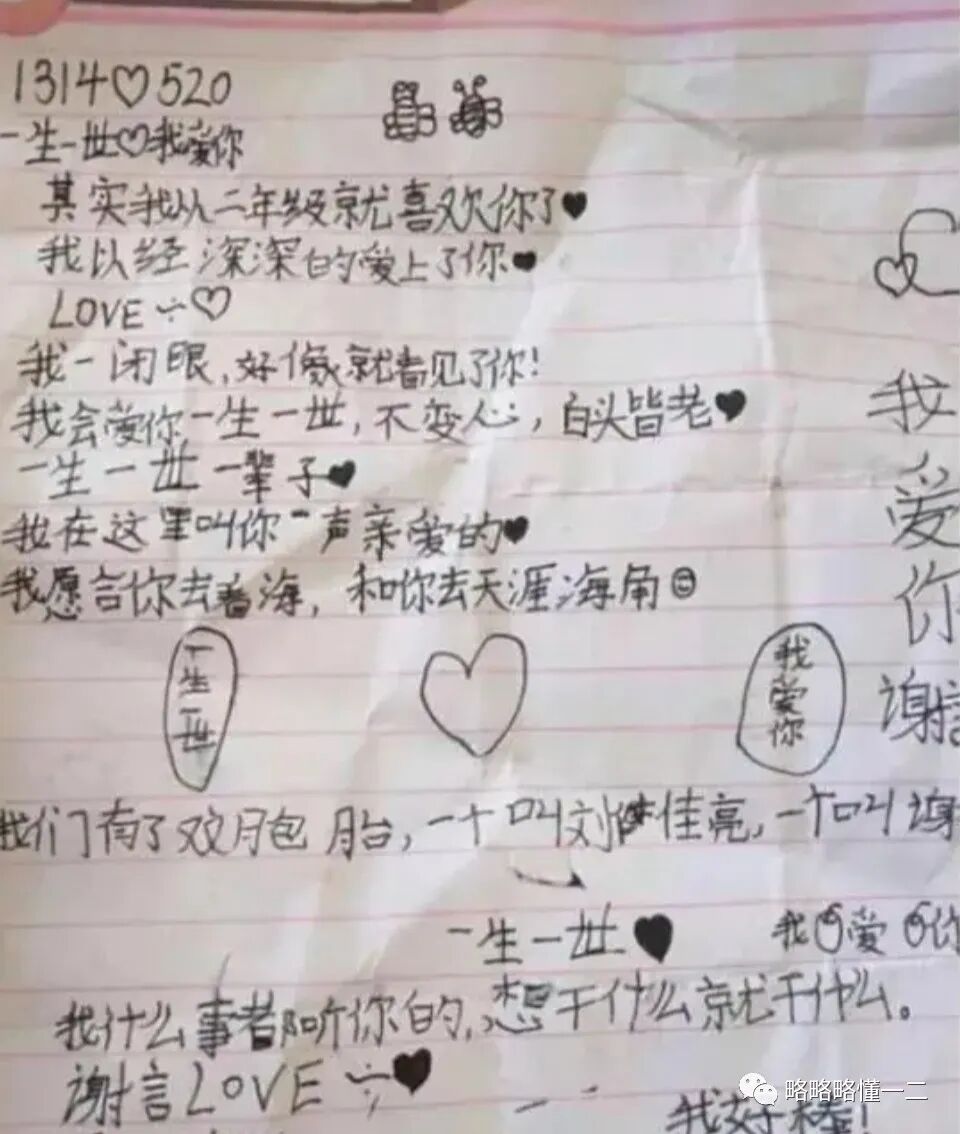 1314♡520
一生一世♡我爱你
其实我从二年级就喜欢你了♥
我以经深深的爱上了你♥
LOVE ♡
我一闭眼,好像就看见了你!
我会爱你一生一世,不变心,白头皆老♥
一生一世一辈子♥
我在这里叫你一声亲爱的♥
我愿言你去看海,和你去天涯海角
一生一世
我爱你
我们有了双月包胎,一个叫刘佳亮,一个叫谢
一生一世♥
我爱你
我什么事都听你的,想干什么就干什么。
谢言LOVE ♥
我好棒!
我爱你
谢言
略略略懂一二